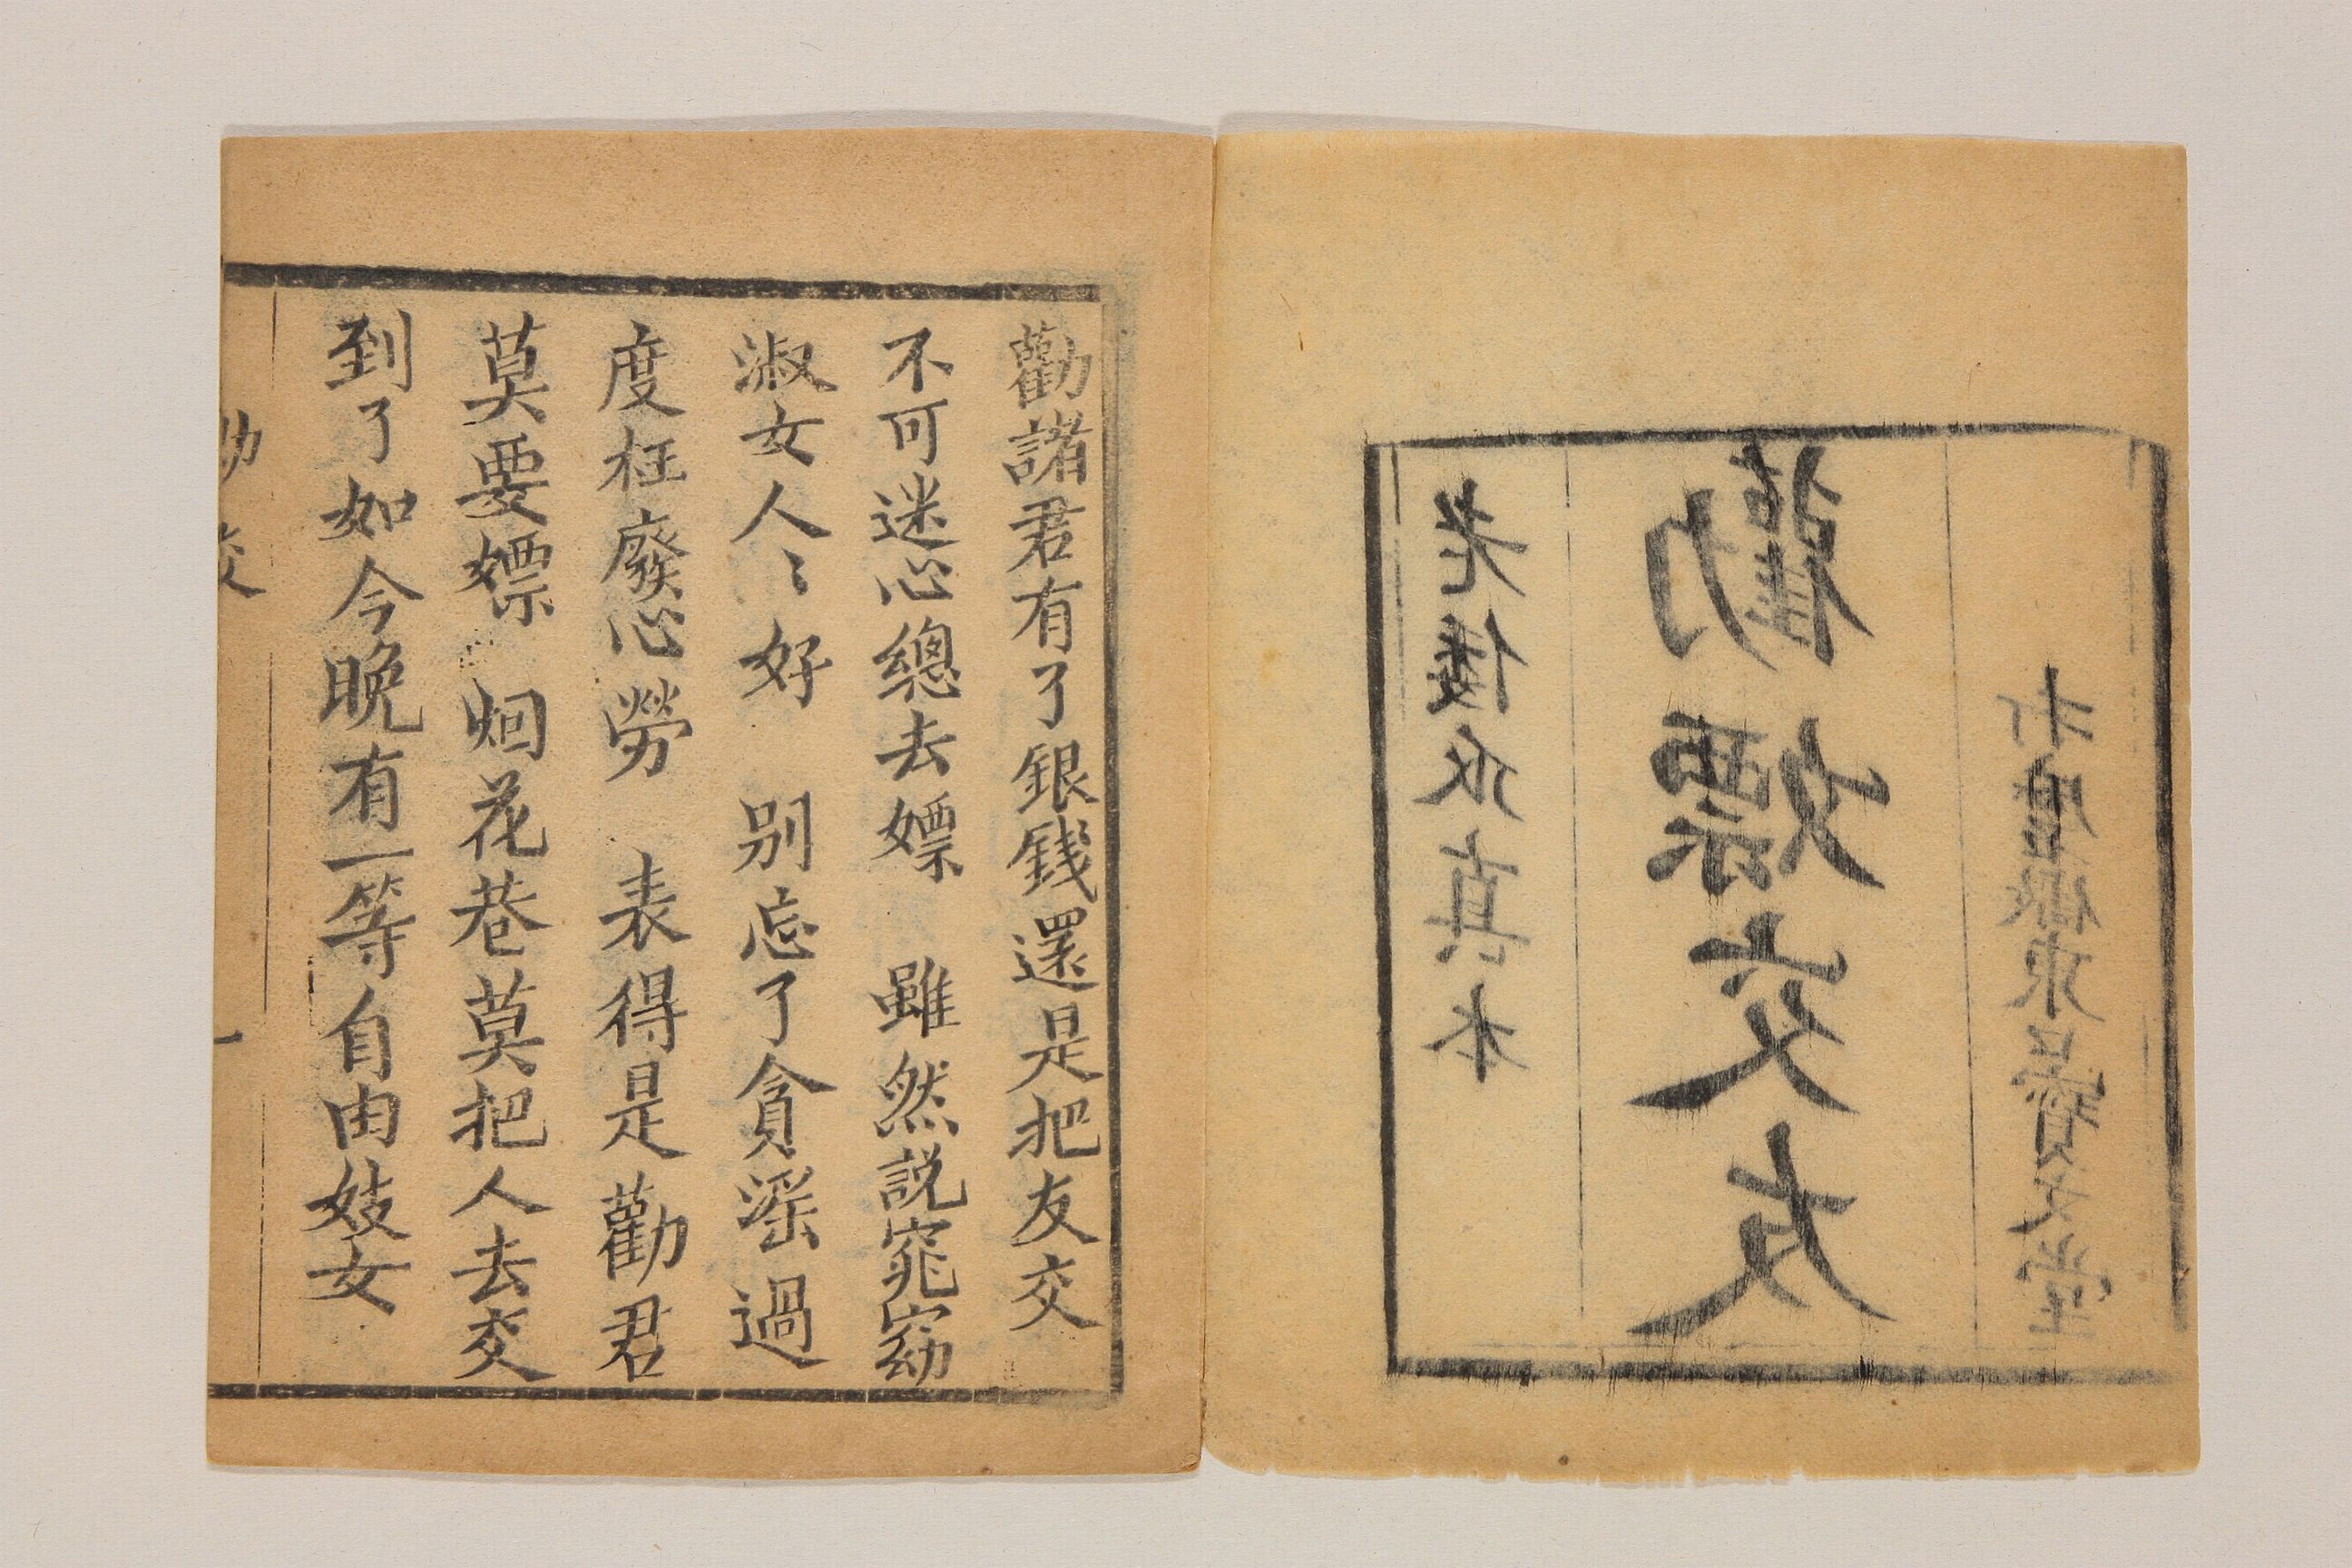 勸嫖交友
老俵依真本
勸諸君有了銀錢還是把友交
不可迷心總去嫖　雖然説窕窈
淑女人〻好　别忘了貪滛過
度枉廢心勞　表得是勸君
莫要嫖　烟花巷莫把人去交
到了如今晚有一等自由妓女
勸交
一